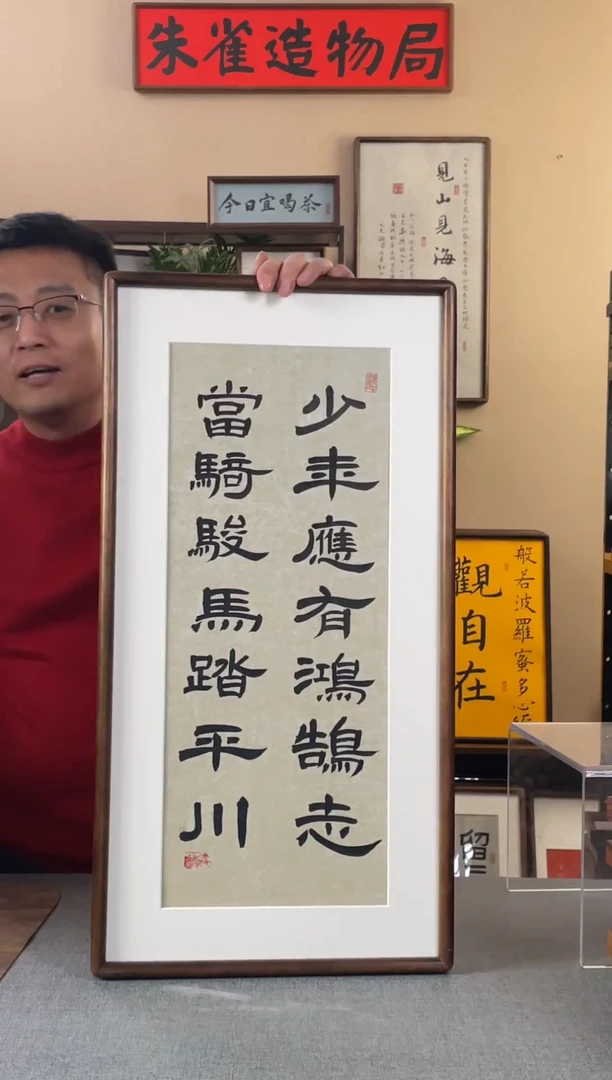 朱雀造物局
今日宜喝茶
見山見海
少年應有鴻鵠志
當騎駿馬踏平川
觀自在
般若波羅蜜多心經
留